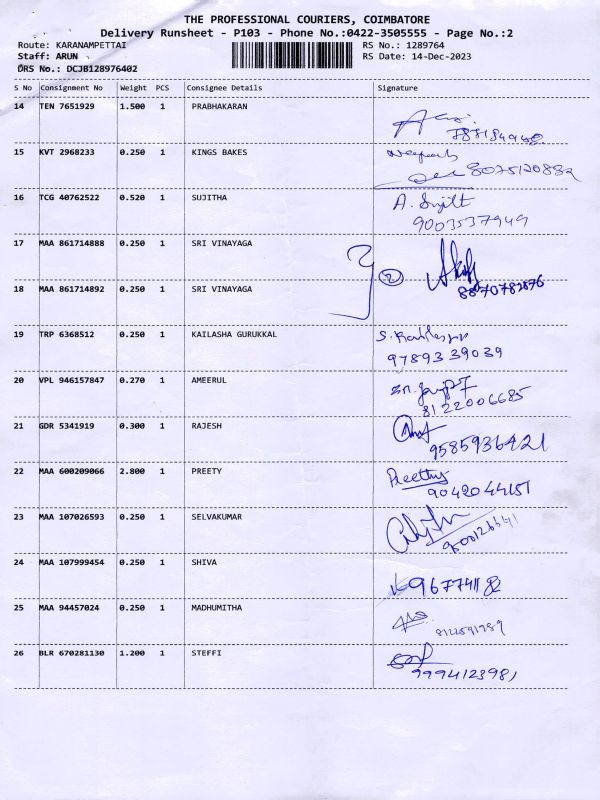 THE PROFESSIONAL COURIERS, COIMBATORE
Delivery Runsheet - P103 - Phone No.:0422-3505555 - Page No.:2
Route: KARANAMPETTAI RS No.: 1289764
Staff: ARUN RS Date: 14-Dec-2023
DRS No.: DCJB128976402
S No Consignment No Weight PCS Consignee Details Signature
14 TEN 7651929 1.500 1 PRABHAKARAN
15 KVT 2968233 0.250 1 KINGS BAKES
8075120882
16 TCG 40762522 0.520 1 SUJITHA A. Sujitt
9003537949
17 MAA 861714888 0.250 1 SRI VINAYAGA
2
18 MAA 861714892 0.250 1 SRI VINAYAGA 8870782876
19 TRP 6368512 0.250 1 KAILASHA GURUKKAL
9789339039
20 VPL 946157847 0.270 1 AMEERUL
8122006685
21 GDR 5341919 0.300 1 RAJESH
9585936421
22 MAA 600209066 2.800 1 PREETY Preethy
9042044151
23 MAA 107026593 0.250 1 SELVAKUMAR
24 MAA 107999454 0.250 1 SHIVA
25 MAA 94457024 0.250 1 MADHUMITHA
26 BLR 670281130 1.200 1 STEFFI
9994123981